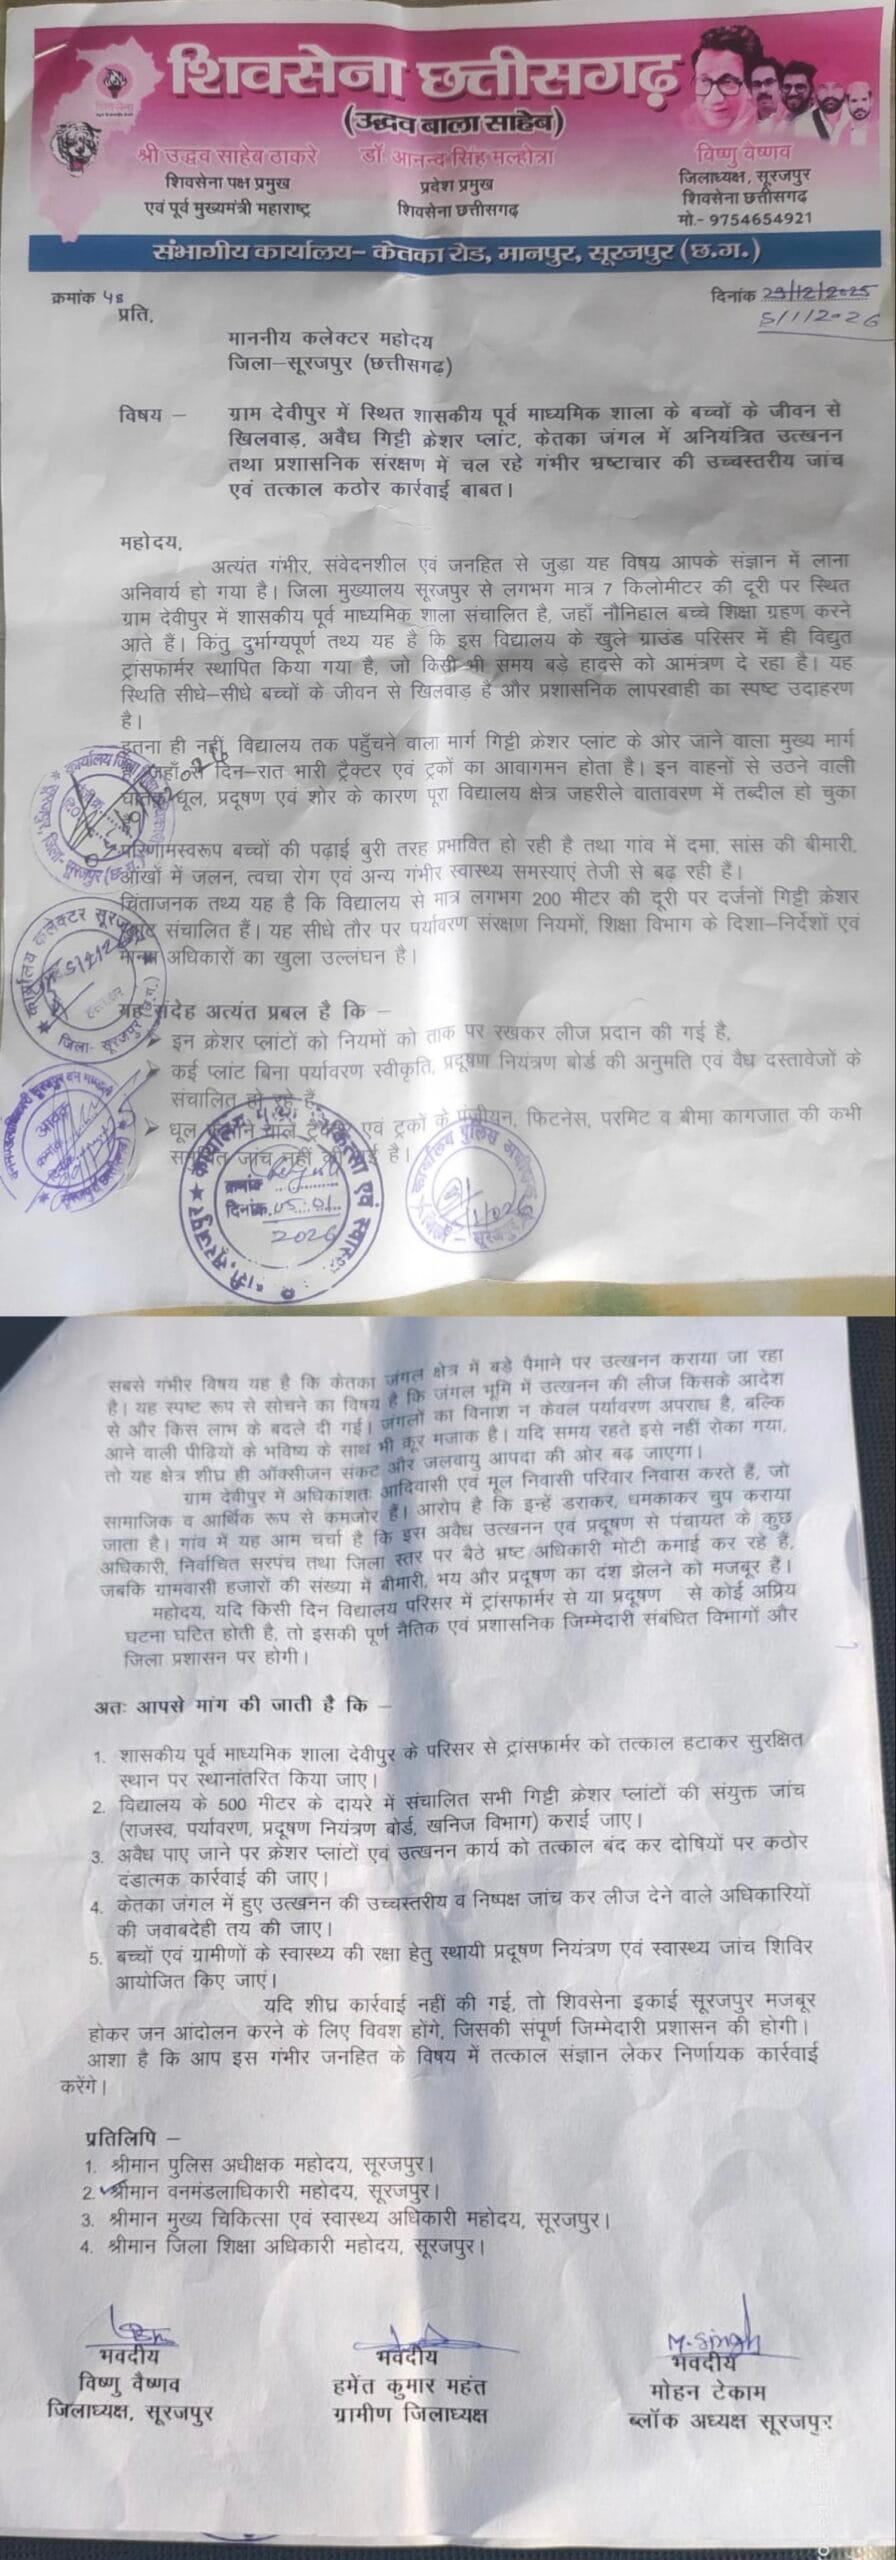 शिवसेना छत्तीसगढ़
(उद्धव बाला साहेब)
श्री उद्धव साहेब ठाकरे
शिवसेना पक्ष प्रमुख
एवं पूर्व मुख्यमंत्री महाराष्ट्र
डॉ. आनन्द सिंह मल्होत्रा
प्रदेश प्रमुख
शिवसेना छत्तीसगढ़
विष्णु वैष्णव
जिलाध्यक्ष, सूरजपुर
शिवसेना छत्तीसगढ़
मो.- 9754654921
संभागीय कार्यालय– केतका रोड, मानपुर, सूरजपुर (छ.ग.)
क्रमांक 48
दिनांक 29/12/2025
5/1/2026
प्रति,
माननीय कलेक्टर महोदय
जिला–सूरजपुर (छत्तीसगढ़)
विषय – ग्राम देवीपुर में स्थित शासकीय पूर्व माध्यमिक शाला के बच्चों के जीवन से
खिलवाड़, अवैध गिट्टी क्रेशर प्लांट, केतका जंगल में अनियंत्रित उत्खनन
तथा प्रशासनिक संरक्षण में चल रहे गंभीर भ्रष्टाचार की उच्चस्तरीय जांच
एवं तत्काल कठोर कार्रवाई बाबत।
महोदय,
अत्यंत गंभीर, संवेदनशील एवं जनहित से जुड़ा यह विषय आपके संज्ञान में लाना
अनिवार्य हो गया है। जिला मुख्यालय सूरजपुर से लगभग मात्र 7 किलोमीटर की दूरी पर स्थित
ग्राम देवीपुर में शासकीय पूर्व माध्यमिक शाला संचालित है, जहाँ नौनिहाल बच्चे शिक्षा ग्रहण करने
आते हैं। किंतु दुर्भाग्यपूर्ण तथ्य यह है कि इस विद्यालय के खुले ग्राउंड परिसर में ही विद्युत
ट्रांसफार्मर स्थापित किया गया है, जो किसी भी समय बड़े हादसे को आमंत्रण दे रहा है। यह
स्थिति सीधे–सीधे बच्चों के जीवन से खिलवाड़ है और प्रशासनिक लापरवाही का स्पष्ट उदाहरण
है।
इतना ही नहीं, विद्यालय तक पहुँचने वाला मार्ग गिट्टी क्रेशर प्लांट के ओर जाने वाला मुख्य मार्ग
जहाँ से दिन–रात भारी ट्रैक्टर एवं ट्रकों का आवागमन होता है। इन वाहनों से उठने वाली
घातक धूल, प्रदूषण एवं शोर के कारण पूरा विद्यालय क्षेत्र जहरीले वातावरण में तब्दील हो चुका
परिणामस्वरूप बच्चों की पढ़ाई बुरी तरह प्रभावित हो रही है तथा गांव में दमा, सांस की बीमारी,
आंखों में जलन, त्वचा रोग एवं अन्य गंभीर स्वास्थ्य समस्याएं तेजी से बढ़ रही हैं।
चिंताजनक तथ्य यह है कि विद्यालय से मात्र लगभग 200 मीटर की दूरी पर दर्जनों गिट्टी क्रेशर
संचालित हैं। यह सीधे तौर पर पर्यावरण संरक्षण नियमों, शिक्षा विभाग के दिशा–निर्देशों एवं
मानव अधिकारों का खुला उल्लंघन है।
यह संदेह अत्यंत प्रबल है कि –
➤ इन क्रेशर प्लांटों को नियमों को ताक पर रखकर लीज प्रदान की गई है,
➤ कई प्लांट बिना पर्यावरण स्वीकृति, प्रदूषण नियंत्रण बोर्ड की अनुमति एवं वैध दस्तावेजों के
संचालित हो रहे हैं,
➤ धूल वाले एवं ट्रकों के पंजीयन, फिटनेस, परमिट व बीमा कागजात की कभी
जांच नहीं की गई है।
कार्यालय कलेक्टर सूरजपुर
जिला- सूरजपुर (छ.ग.)
5/1/26
आवक
क्रमांक
दिनांक 05.01
2026
कार्यालय पुलिस
सबसे गंभीर विषय यह है कि केतका जंगल क्षेत्र में बड़े पैमाने पर उत्खनन कराया जा रहा
है। यह स्पष्ट रूप से सोचने का विषय है कि जंगल भूमि में उत्खनन की लीज किसके आदेश
से और किस लाभ के बदले दी गई। जंगलों का विनाश न केवल पर्यावरण अपराध है, बल्कि
आने वाली पीढ़ियों के भविष्य के साथ भी क्रूर मजाक है। यदि समय रहते इसे नहीं रोका गया,
तो यह क्षेत्र शीघ्र ही ऑक्सीजन संकट और जलवायु आपदा की ओर बढ़ जाएगा।
ग्राम देवीपुर में अधिकांशतः आदिवासी एवं मूल निवासी परिवार निवास करते हैं, जो
सामाजिक व आर्थिक रूप से कमजोर हैं। आरोप है कि इन्हें डराकर, धमकाकर चुप कराया
जाता है। गांव में यह आम चर्चा है कि इस अवैध उत्खनन एवं प्रदूषण से पंचायत के कुछ
अधिकारी, निर्वाचित सरपंच तथा जिला स्तर पर बैठे भ्रष्ट अधिकारी मोटी कमाई कर रहे हैं,
जबकि ग्रामवासी हजारों की संख्या में बीमारी, भय और प्रदूषण का दंश झेलने को मजबूर हैं।
महोदय, यदि किसी दिन विद्यालय परिसर में ट्रांसफार्मर से या प्रदूषण से कोई अप्रिय
घटना घटित होती है, तो इसकी पूर्ण नैतिक एवं प्रशासनिक जिम्मेदारी संबंधित विभागों और
जिला प्रशासन पर होगी।
अतः आपसे मांग की जाती है कि –
1. शासकीय पूर्व माध्यमिक शाला देवीपुर के परिसर से ट्रांसफार्मर को तत्काल हटाकर सुरक्षित
स्थान पर स्थानांतरित किया जाए।
2. विद्यालय के 500 मीटर के दायरे में संचालित सभी गिट्टी क्रेशर प्लांटों की संयुक्त जांच
(राजस्व, पर्यावरण, प्रदूषण नियंत्रण बोर्ड, खनिज विभाग) कराई जाए।
3. अवैध पाए जाने पर क्रेशर प्लांटों एवं उत्खनन कार्य को तत्काल बंद कर दोषियों पर कठोर
दंडात्मक कार्रवाई की जाए।
4. केतका जंगल में हुए उत्खनन की उच्चस्तरीय व निष्पक्ष जांच कर लीज देने वाले अधिकारियों
की जवाबदेही तय की जाए।
5. बच्चों एवं ग्रामीणों के स्वास्थ्य की रक्षा हेतु स्थायी प्रदूषण नियंत्रण एवं स्वास्थ्य जांच शिविर
आयोजित किए जाएं।
यदि शीघ्र कार्रवाई नहीं की गई, तो शिवसेना इकाई सूरजपुर मजबूर
होकर जन आंदोलन करने के लिए विवश होंगे, जिसकी संपूर्ण जिम्मेदारी प्रशासन की होगी।
आशा है कि आप इस गंभीर जनहित के विषय में तत्काल संज्ञान लेकर निर्णायक कार्रवाई
करेंगे।
प्रतिलिपि –
1. श्रीमान पुलिस अधीक्षक महोदय, सूरजपुर।
2. श्रीमान वनमंडलाधिकारी महोदय, सूरजपुर।
3. श्रीमान मुख्य चिकित्सा एवं स्वास्थ्य अधिकारी महोदय, सूरजपुर।
4. श्रीमान जिला शिक्षा अधिकारी महोदय, सूरजपुर।
भवदीय
विष्णु वैष्णव
जिलाध्यक्ष, सूरजपुर
भवदीय
हमेंत कुमार महंत
ग्रामीण जिलाध्यक्ष
M. Singh
भवदीय
मोहन टेकाम
ब्लॉक अध्यक्ष सूरजपुर